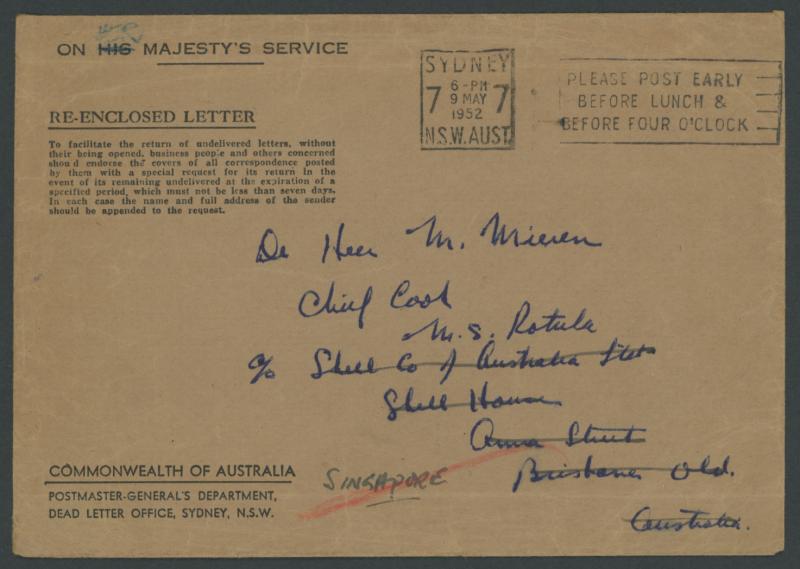 ON HIS MAJESTY'S SERVICE
RE-ENCLOSED LETTER
To facilitate the return of undelivered letters, without
their being opened, business people and others concerned
should endorse the covers of all correspondence posted
by them with a special request for its return in the
event of its remaining undelivered at the expiration of a
specified period, which must not be less than seven days.
In each case the name and full address of the sender
should be appended to the request.
SYDNEY
7 6-PM 7
9 MAY
1952
N.S.W. AUST.
PLEASE POST EARLY
BEFORE LUNCH &
BEFORE FOUR O'CLOCK
De Heer M. Mieren
Chief Cook
M.S. Rotula
c/o Shell Co of Australia
Shell House
Anna Street
Brisbane Qld.
Australia.
SINGAPORE
COMMONWEALTH OF AUSTRALIA
POSTMASTER-GENERAL'S DEPARTMENT,
DEAD LETTER OFFICE, SYDNEY, N.S.W.